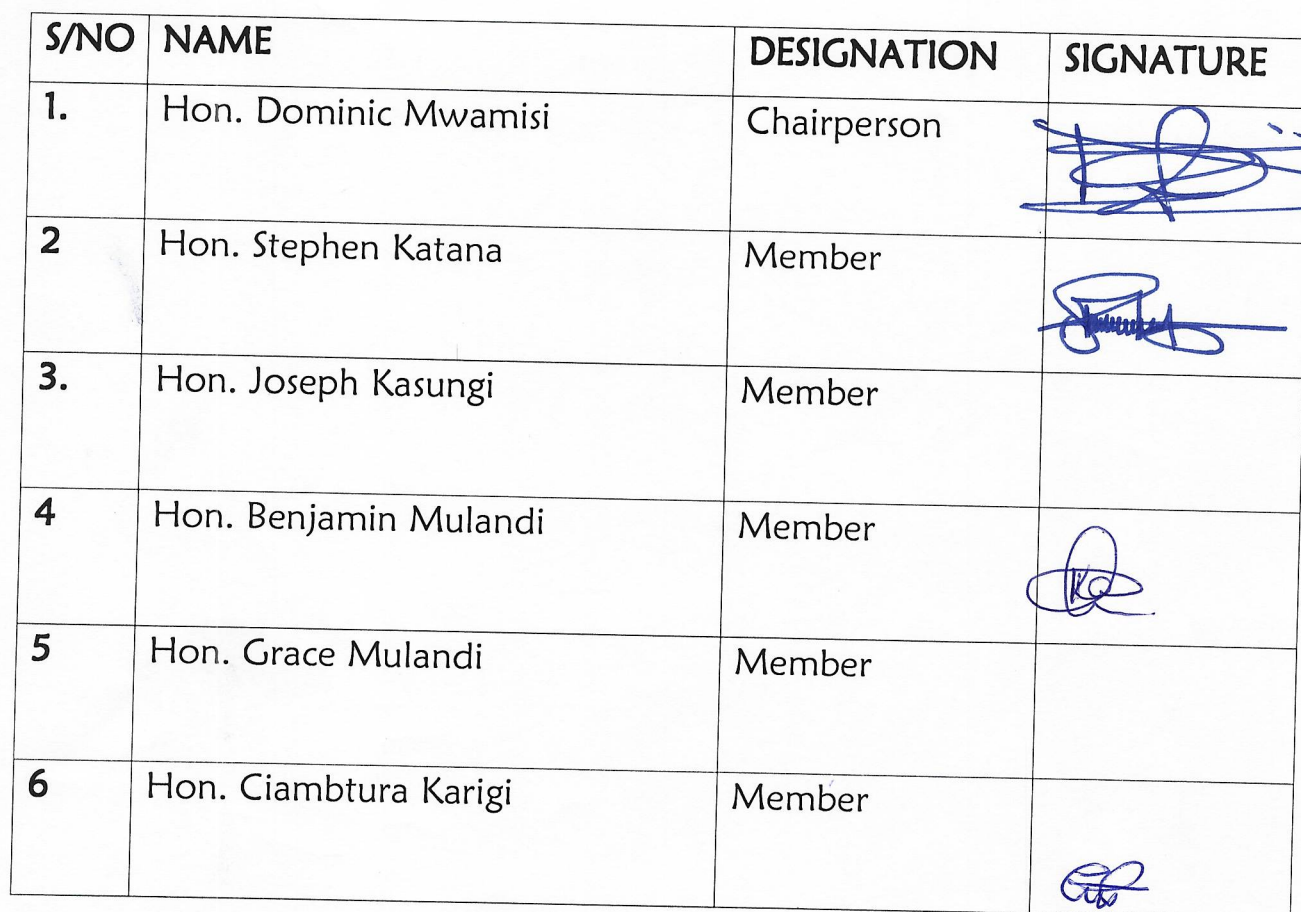 S/NO NAME DESIGNATION SIGNATURE
1. Hon. Dominic Mwamisi Chairperson
2 Hon. Stephen Katana Member
3. Hon. Joseph Kasungi Member
4 Hon. Benjamin Mulandi Member
5 Hon. Grace Mulandi Member
6 Hon. Ciambtura Karigi Member